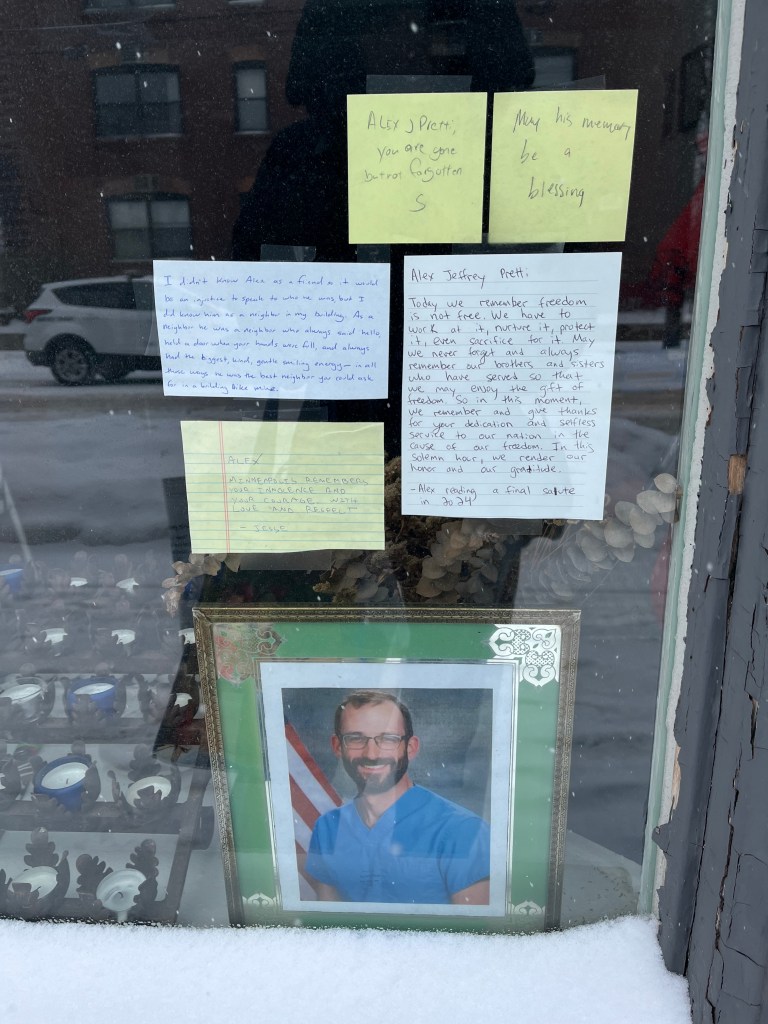 ALEX J Pretti,
you are gone
but not forgotten
S
May his memory
be a
blessing
I didn't know Alex as a friend & it would
be an injustice to speak to who he was but I
did know him as a neighbor in my building. As a
neighbor he was a neighbor who always said hello,
held a door when your hands were full, and always
had the biggest, kind, gentle smiling energy – in all
those ways he was the best neighbor you could ask
for in a building like mine.
Alex Jeffrey Pretti
Today we remember freedom
is not free. We have to
work at it, nurture it, protect
it, even sacrifice for it. May
we never forget and always
remember our brothers and sisters
who have served so that
we may enjoy the gift of
freedom. So in this moment,
we remember and give thanks
for your dedication and selfless
service to our nation in the
cause of our freedom. In this
solemn hour, we render our
honor and our gratitude.
-Alex reading a final salute
in 2024
ALEX
MINNEAPOLIS REMEMBERS
YOUR INNOLENCE AND
YOUR COURAGE. WITH
LOVE AND RESPECT
- JESSE